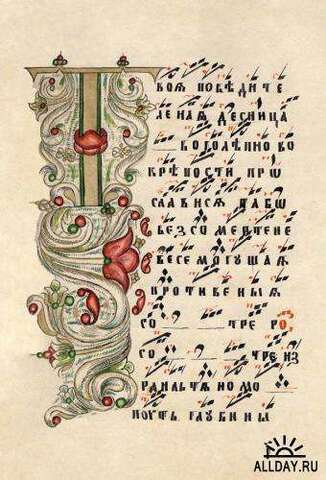 Т
воѧ побѣдите
леная десница
боголѣпно во
крѣпости про
слависѧ тѣбо
безсомертене
веземогущая
противеныѧ
со тре ро
со тре из
раильтѧномо
поуть глубины
ALLDAY.RU